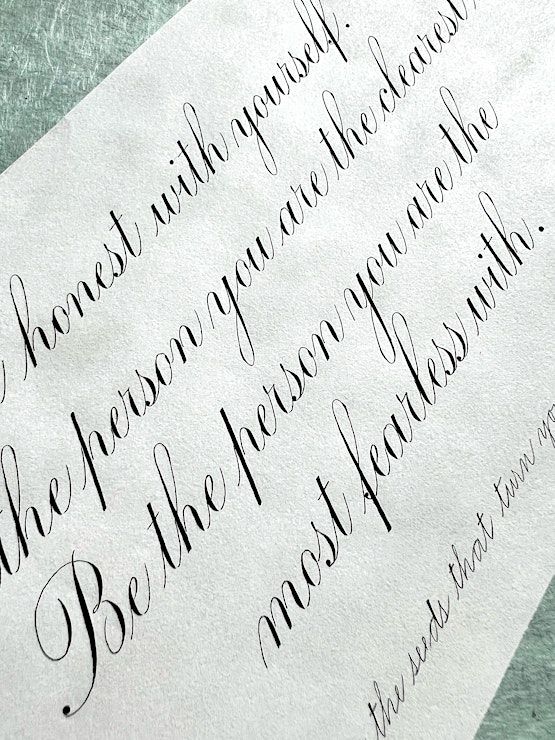 honest with yourself.
the person you are the clearest
Be the person you are the
most fearless with.
the seeds that turn